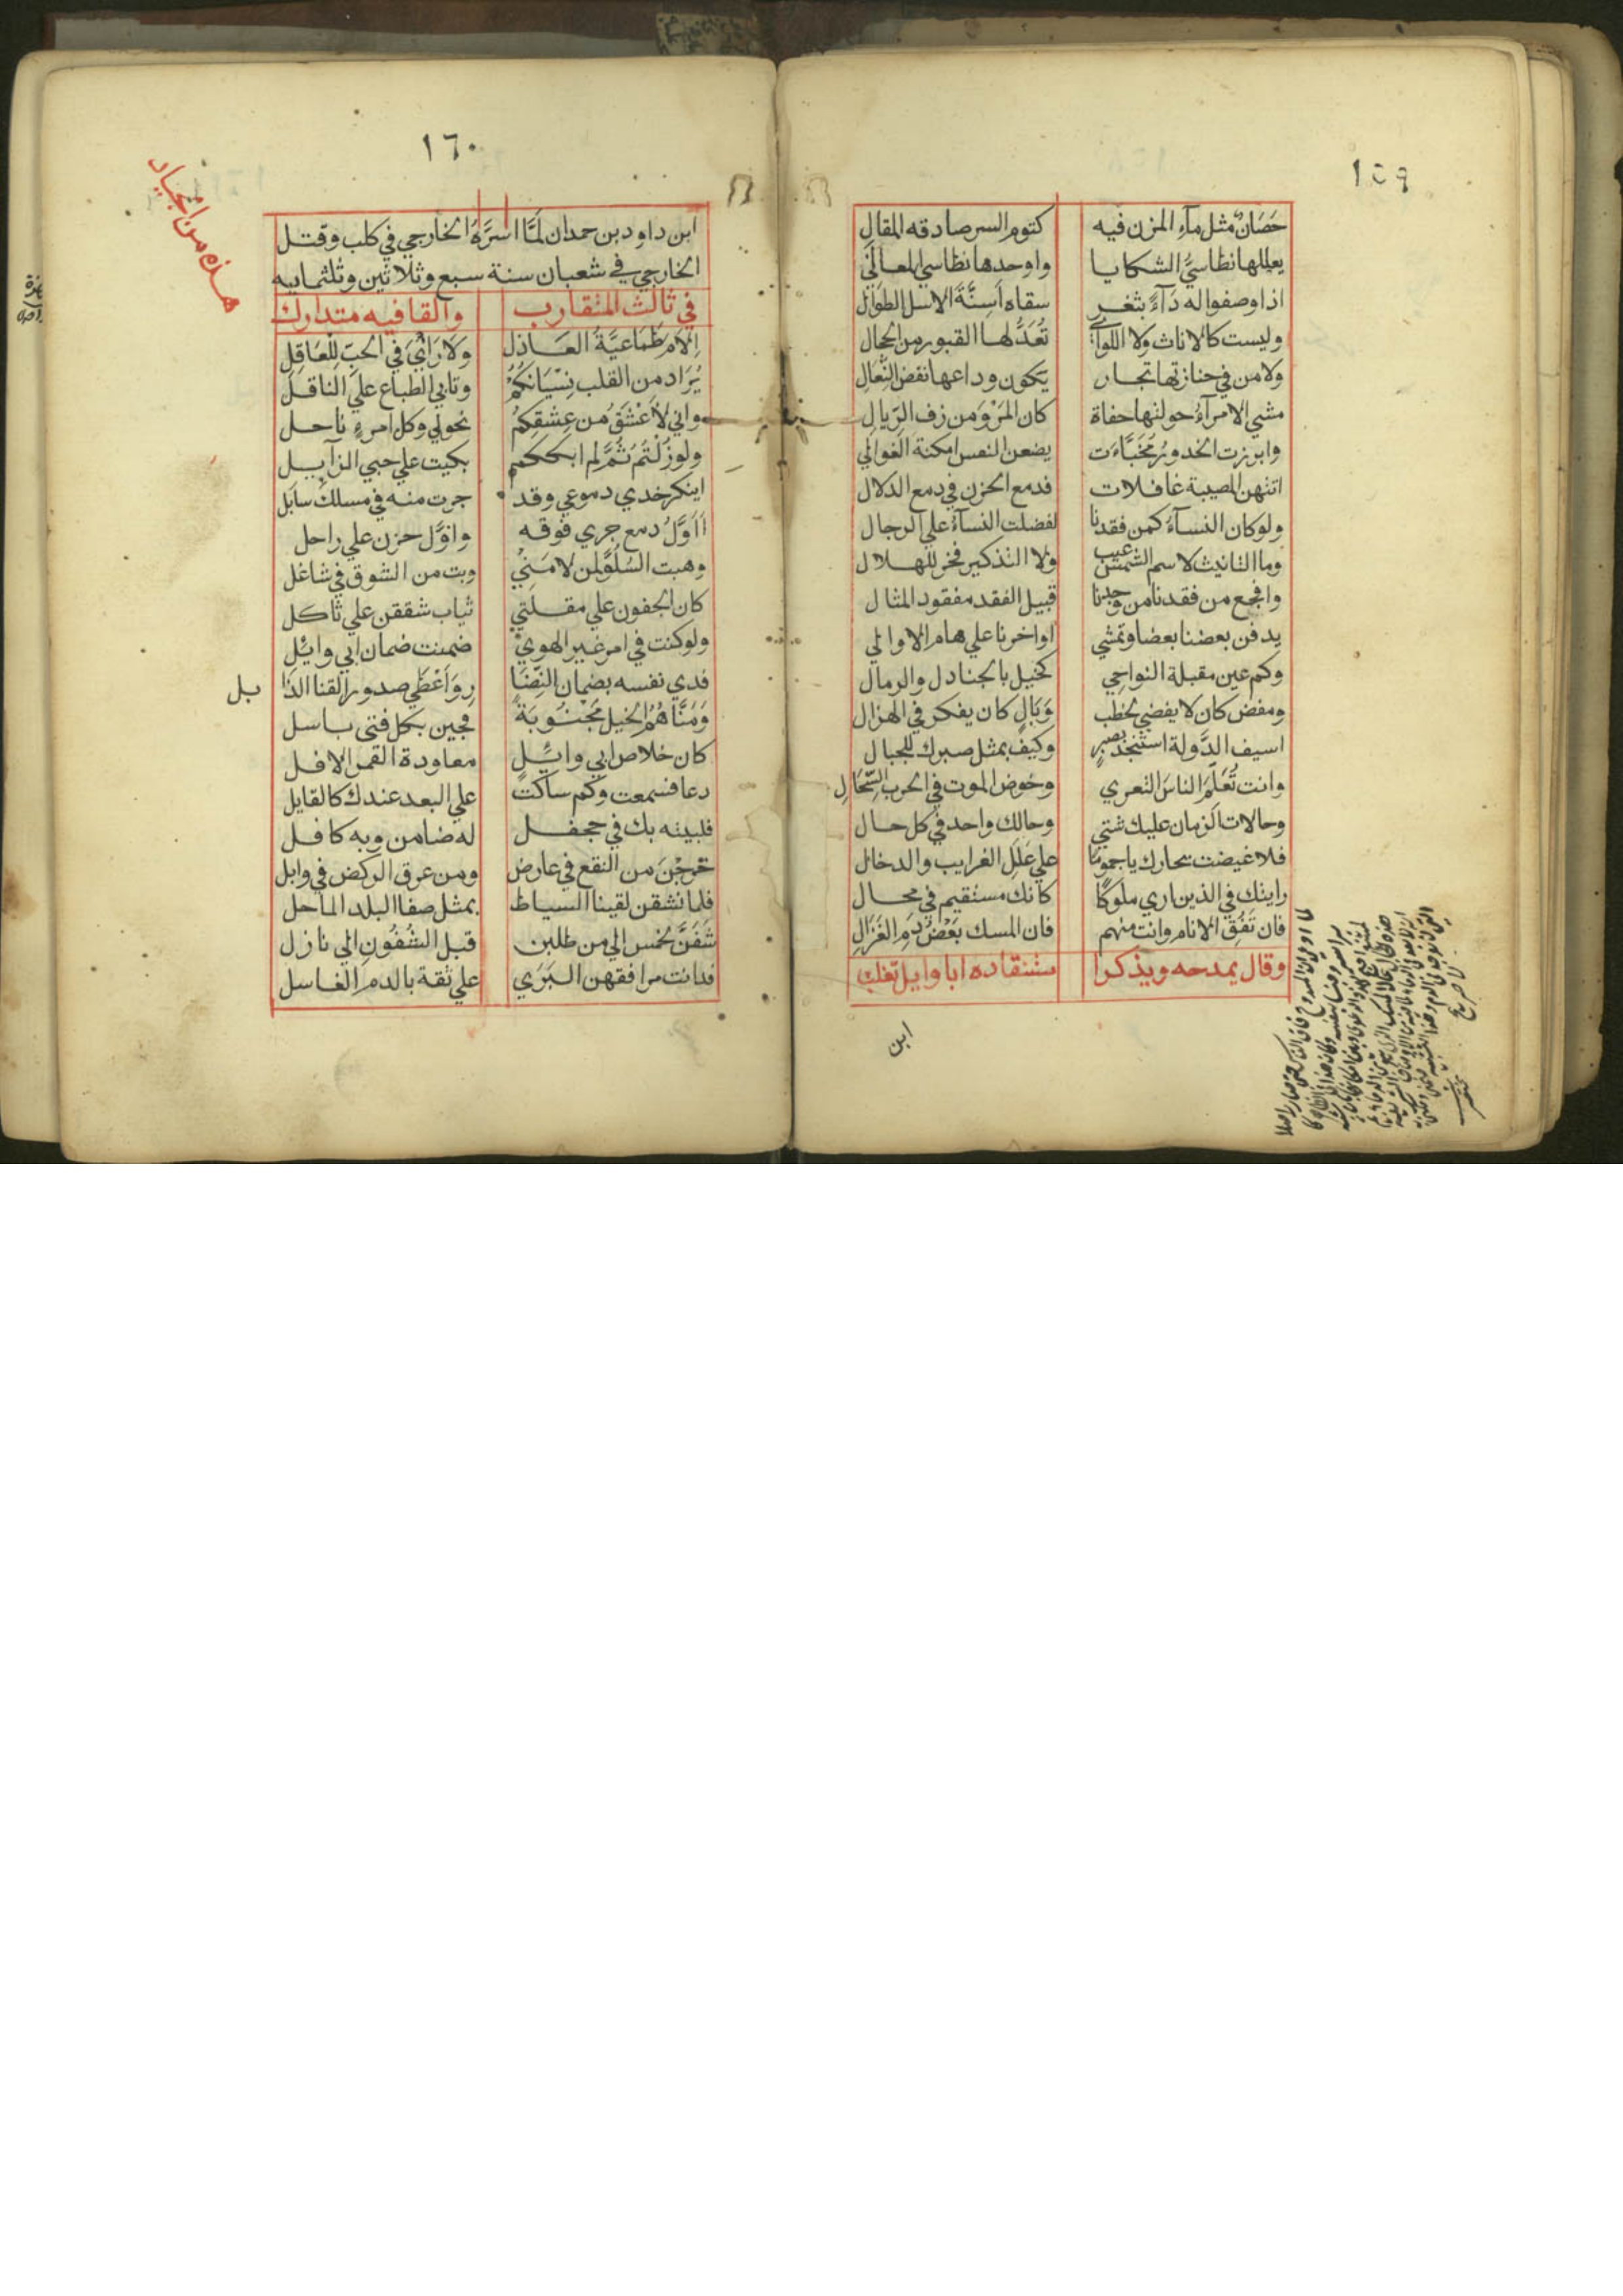 ١٥٩
حَصَانٌ مثل مآء المزن فيه كتوم السر صادقه المقال
يعللها نطاسيُّ الشكايا واوحدها نطاسي المعالي
اذا وصفوا له دَآءً بثغر سقاه اَسِنَّةَ الاسل الطوال
وليست كالاناث ولا اللواتي تُعَدُّ لها القبور من الحجال
ولا من في جنازتها تجار يكون وداعها نفض النِّعال
مشي الامرآءُ حوليها حفاة كان المَرْوَ من زف الرِّيال
وابرزت الخدورُ مُخَبَّاءَت يضعن النفس امكنة الغوالي
اتتهن المصيبة غافلات فدمع الحزن في دمع الدلال
ولو كان النسآءُ كمن فقدنا لفضلت النسآءُ علي الرجال
وما التانيث لاسم الشمس عيب ولا التذكير فخر للهلال
وافجع من فقدنا من وجدنا قبيل الفقد مفقود المثال
يدفن بعضنا بعضا وتمشي اواخرنا علي هام الاوالي
وكم عين مقبلة النواحي كحيل بالجنادل والرمال
ومغض كان لا يغضي لخطب وَبَالٍ كان يفكر في الهزال
اسيف الدَّولة استنجد بصبرٍ وكيف بمثل صبرك للجبال
وانت تُعَلِّمَ الناسَ التعزي وخوض الموت في الحرب السِّجَالِ
وحالات الزمان عليك شتي وحالك واحد في كل حال
فلا غيضت بحارك يا جموما علي عَلَلِ الغرايب والدخال
رايتك في الذين اري ملوكًا كانك مستقيم في محال
فان تَفُقِ الانام وانت منهم فان المسك بَعْضُ دَمِ الغَزَالِ
وقال يمدحه ويذكر استنقاده ابا وايل تغلب
ابن
١٦٠
هذه من الجياد
ابن داود بن حمدان لَمَّا اَسَرَهُ الخارجي في كلب وقتل
الخارجي في شعبان سنة سبع وثلاثين وثلثمانيه
في ثالث المتقارب والقافيه متدارك
اِلَامَ طَمَاعيَّةُ العَاذل وَلَا رَأْيَ في الحبِّ لِلْعَاقِلِ
يُرَاد من القلب نِسْيَانكُمُ وتابي الطباع علي الناقل
واني لَاَعْشَقُ من عِشْقِكُمُ نحولي وكل امرءٍ ناحل
ولو زُلْتُمُ ثُمَّ لم ابككم بكيت علي حبي الزآيل
اينكر خدي دموعي وقد جرت منه في مسلك سابل
اَاَوَّلُ دمع جري فوقه واوَّل حزن علي راحل
وهبت السُلوَّ لمن لامَنِيْ وبت من الشوق في شاغل
كان الجفون علي مقلتي ثياب شققن علي ثاكل
ولو كنت في امر غير الهوي ضمنت ضمان ابي وائل
فدي نفسه بضمان النِّضَا رِ وَاَعْطَي صدور القنا الذا بل
وَمَنَّاهُمُ الخيل مَجْنُوبَةً فجين بكل فتى باسل
كان خلاص ابي وائِلٍ معاودة القمر الافل
دعا فسمعت وكم ساكت علي البعد عندك كالقايل
فلبيته بك في جحفل له ضامن وبه كافل
خرجن من النقع في عارض ومن عرق الركض في وابل
فلما نشفن لقينا السياط بمثل صفا البلد الماحل
شَفَنَّ لخمس الي من طلبن قبل الشُفُونِ الي نازل
فدانت مرافقهن البَرَي علي ثقة بالدم الغاسل